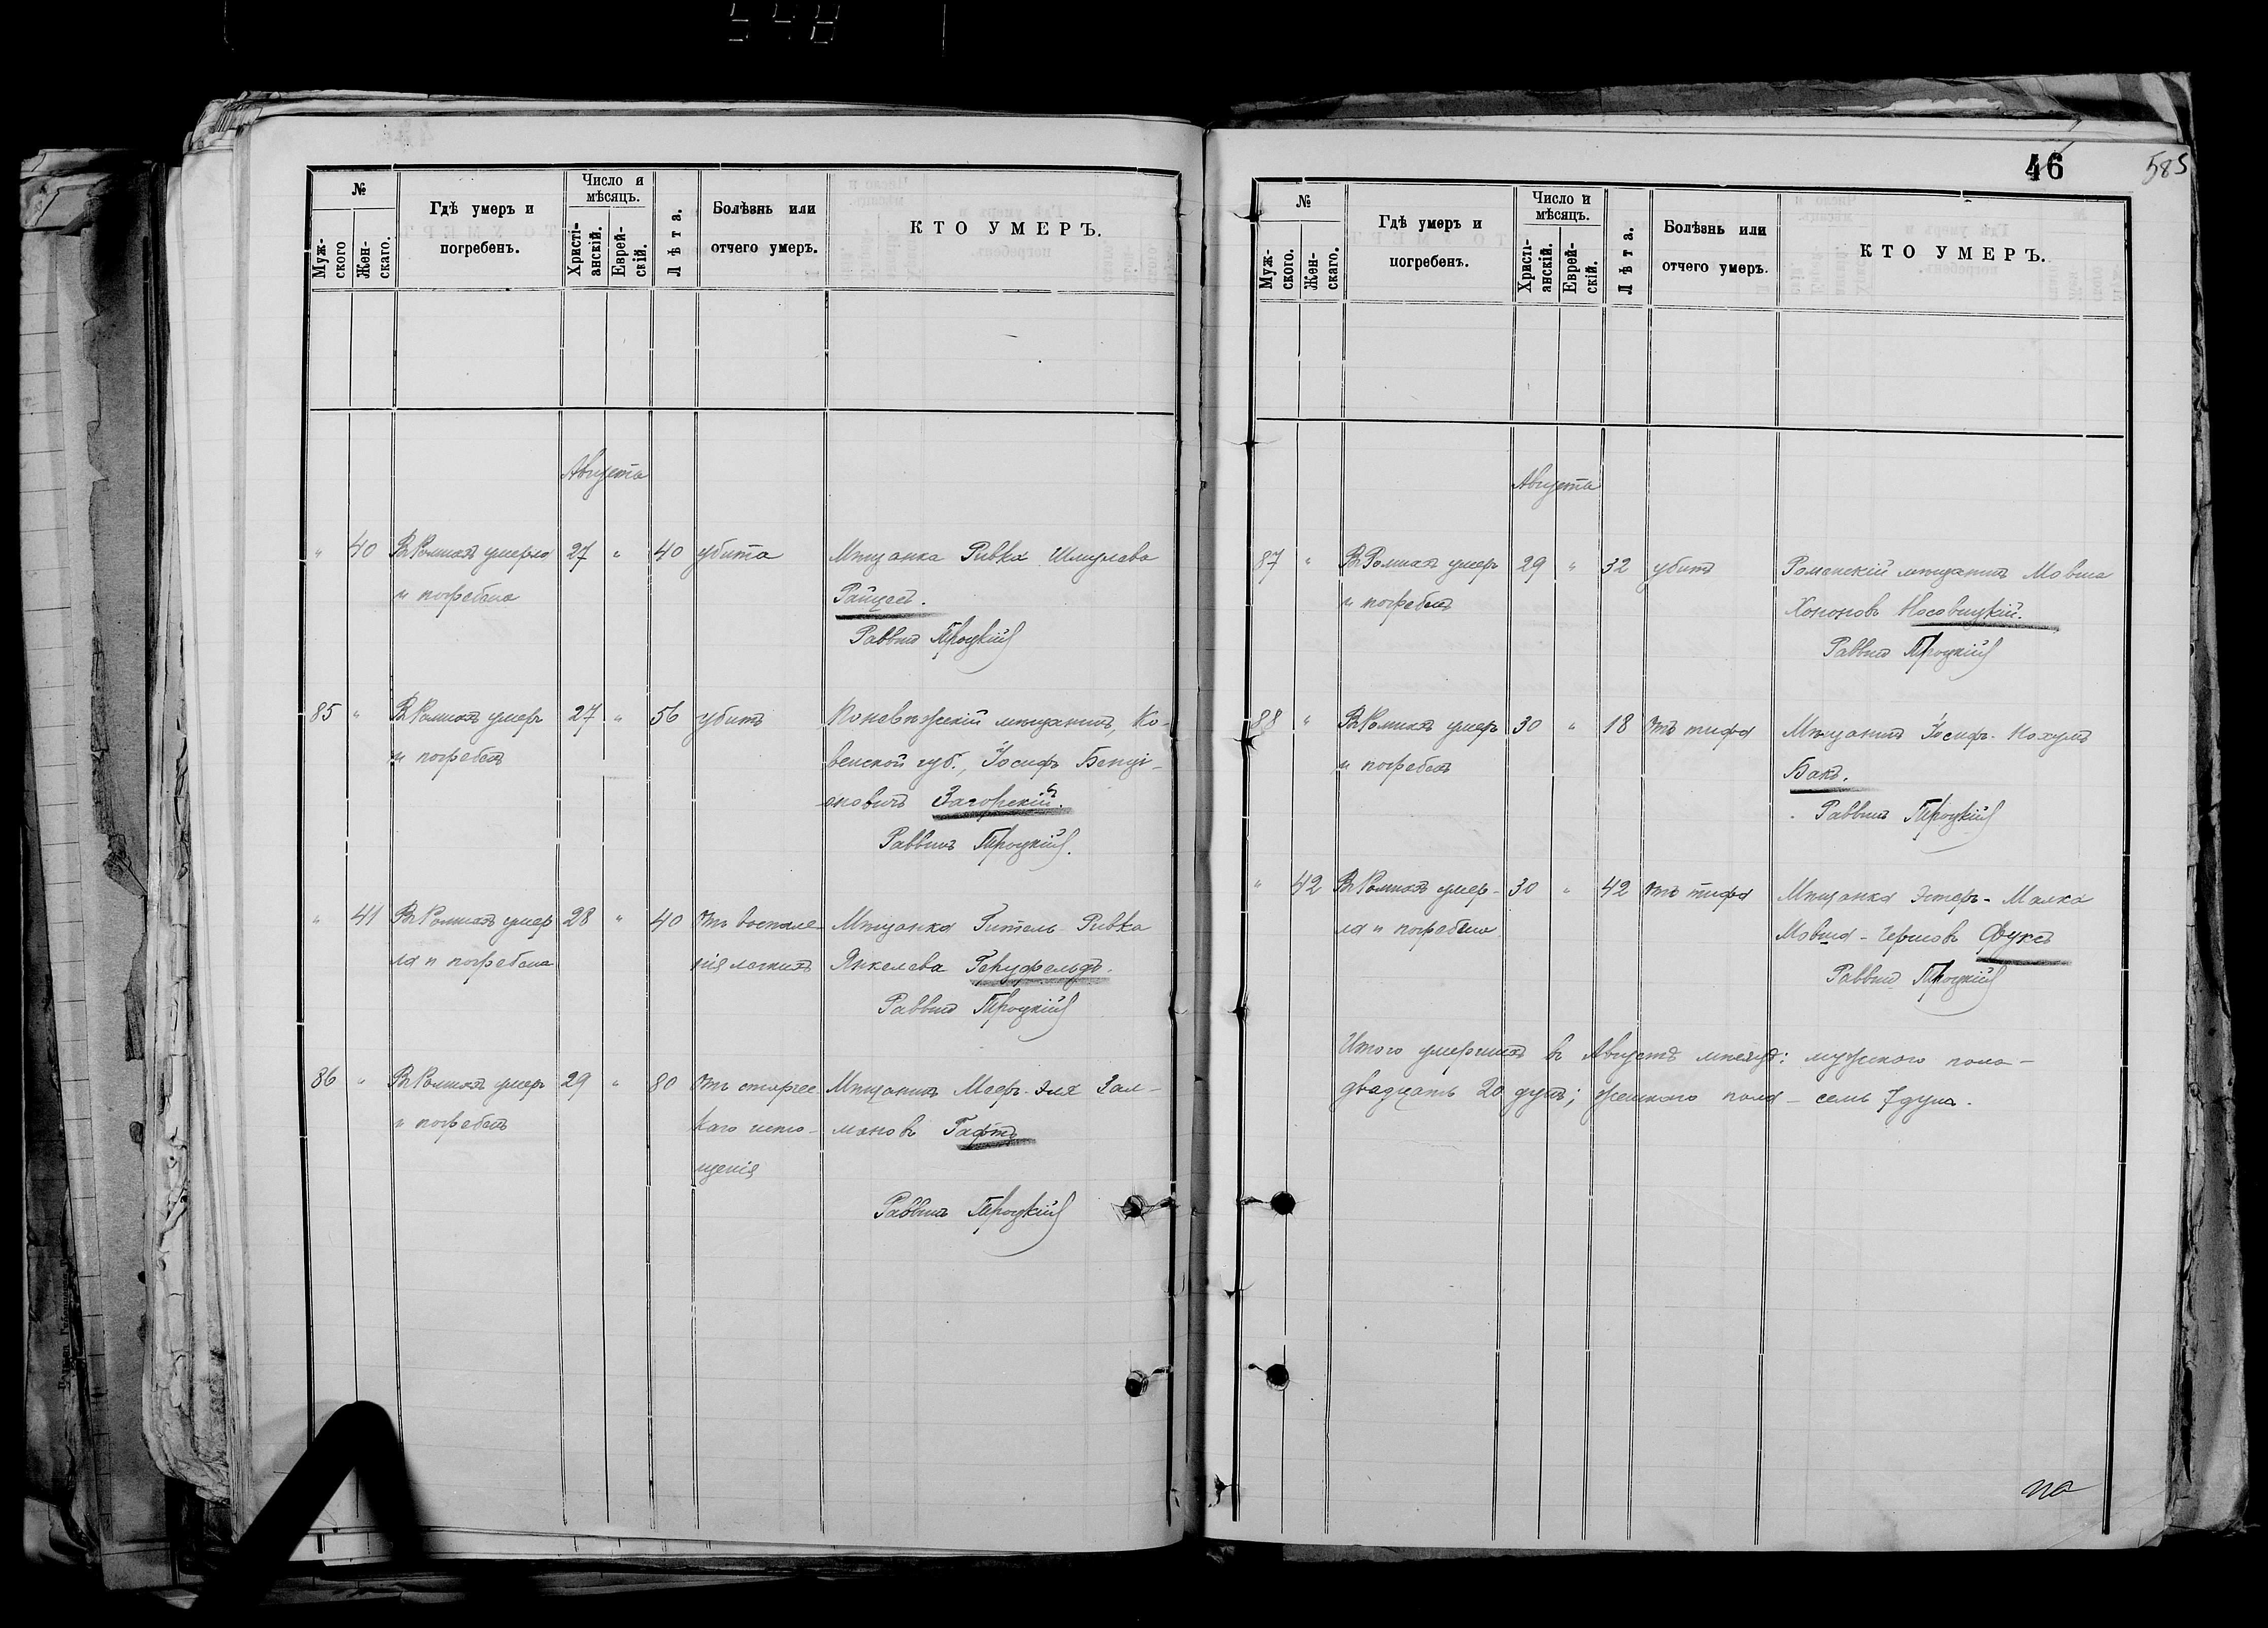 46
585
№
Муж-
ского
Жен-
скаго.
Гдѣ умеръ и
погребенъ.
Число и
мѣсяцъ.
Христі-
анскій.
Еврей-
скій.
Лѣта.
Болѣзнь или
отчего умеръ.
КТО УМЕРЪ.
Августа
" 40 Въ Ромнахъ умерла 27 " 40 убита Мѣщанка Ривка Шмулева
и погребена
Раввинъ Троцкій
85 " Въ Ромнахъ умеръ 27 " 56 убитъ Поневѣжскій мѣщанинъ, Ко-
и погребенъ венской губ., Іосифъ Бенці-
оновичъ Загорскій.
Раввинъ Троцкій.
" 41 Въ Ромнахъ умер 28 " 40 Отъ воспале- Мѣщанка Гитель Ривка
ла и погребена нія легкихъ Янкелева
Раввинъ Троцкій
86 " Въ Ромнахъ умеръ 29 " 80 Отъ старчес- Мѣщанинъ Мееръ-Эля Зал-
и погребенъ каго исто- мановъ
щенія
Раввинъ Троцкій
№
Муж-
ского.
Жен-
скаго.
Гдѣ умеръ и
погребенъ.
Число и
мѣсяцъ.
Христі-
анскій.
Еврей-
скій.
Лѣта.
Болѣзнь или
отчего умеръ.
КТО УМЕРЪ.
Августа
87 " Въ Ромнахъ умеръ 29 " 32 убитъ Роменскій мѣщанинъ Мовша
и погребенъ Хононовъ Носовицкій.
Раввинъ Троцкій
88 " Въ Ромнахъ умеръ 30 " 18 Отъ тифа Мѣщанинъ Іосифъ-Нохумъ
и погребенъ Бакъ.
Раввинъ Троцкій
" 42 Въ Ромнахъ умер- 30 " 42 Отъ тифа Мѣщанка Эстеръ-Малка
ла и погребена Мовша-Гершовъ Фуксъ
Раввинъ Троцкій
Итого умершихъ въ Августѣ мѣсяцѣ: мужского пола-
двадцать 20 душъ; женского пола - семь 7 душъ.